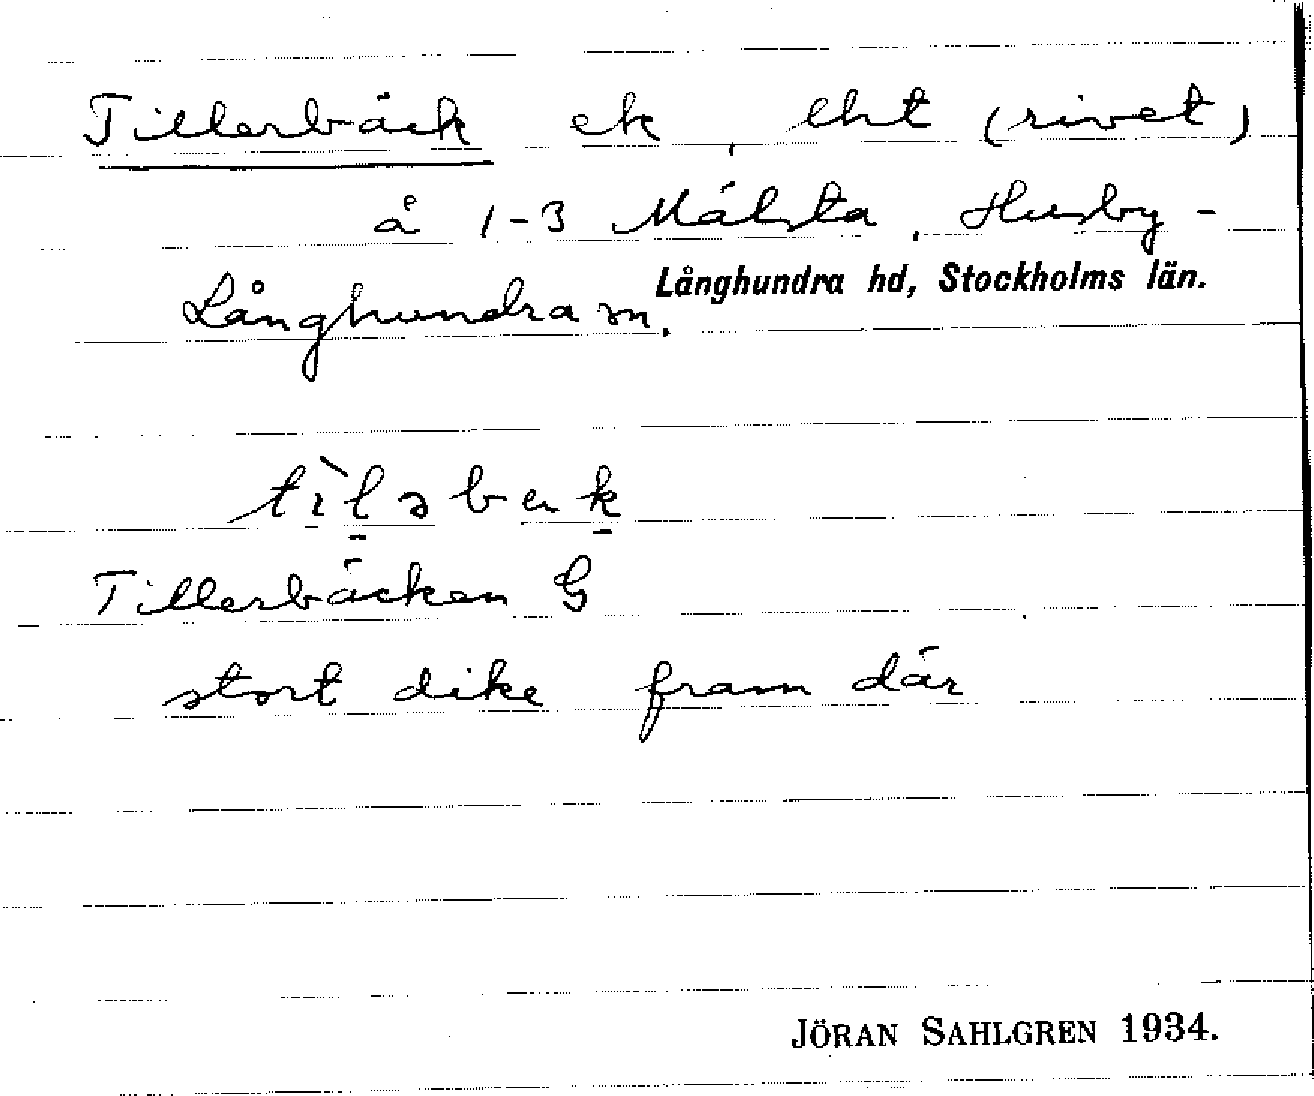 Tillerbäck ek, lht (rivet)
å 1-3 Mälsta, Husby-
Långhundra sn. Långhundra hd, Stockholms län.
tìləbäk
Tillerbäcken G
stort dike fram där
JÖRAN SAHLGREN 1934.